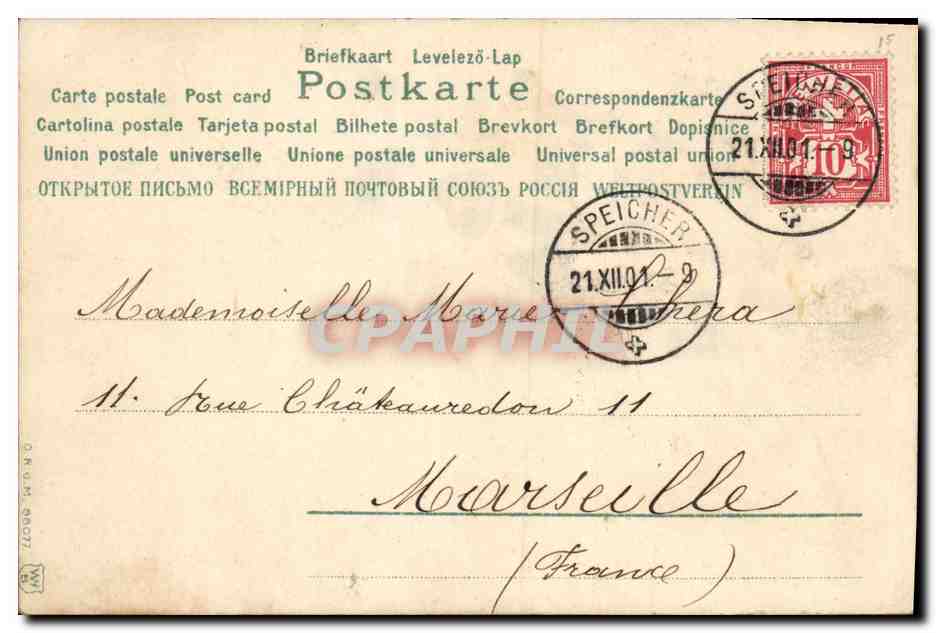 15
Briefkaart Levelező-Lap
Postkarte
Carte postale Post card Correspondenzkarte
Cartolina postale Tarjeta postal Bilhete postal Brevkort Brefkort Dopisnice
Union postale universelle Unione postale universale Universal postal union
ОТКРЫТОЕ ПИСЬМО ВСЕМIРНЫЙ ПОЧТОВЫЙ СОЮЗЪ РОССIЯ WELTPOSTVEREIN
HELVETIA
10
SPEICHER
21.XII.01.-9
SPEICHER
21.XII.01.-9
Mademoiselle Marie
CPAPHIL
11. Rue Châteauredon 11
Marseille
(France)
D.R.G.M. 88077